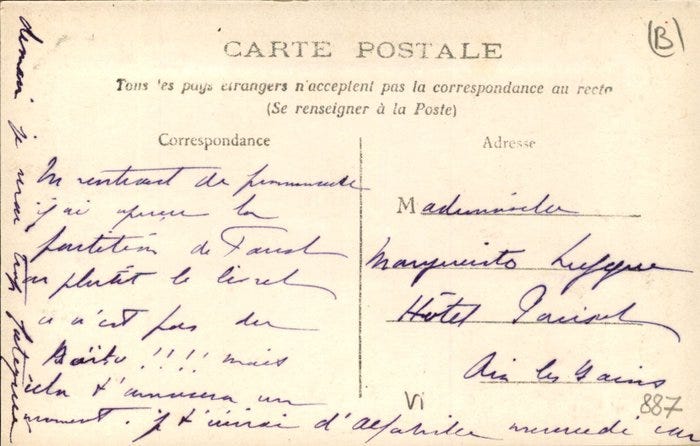 (B)
CARTE POSTALE
Tous les pays étrangers n'acceptent pas la correspondance au recto
(Se renseigner à la Poste)
Correspondance
Adresse
En rentrant de promenade
j'ai aperçu la
partition de Faust
ou plutôt le livret
ce n'est pas du
Boïto !!!! mais
cela t'amusera un
moment. Je t'écrirai d' mercredi car
demain je serai trop
Mademoiselle
Marguerite
Hôtel
Aix les Bains
VI
887